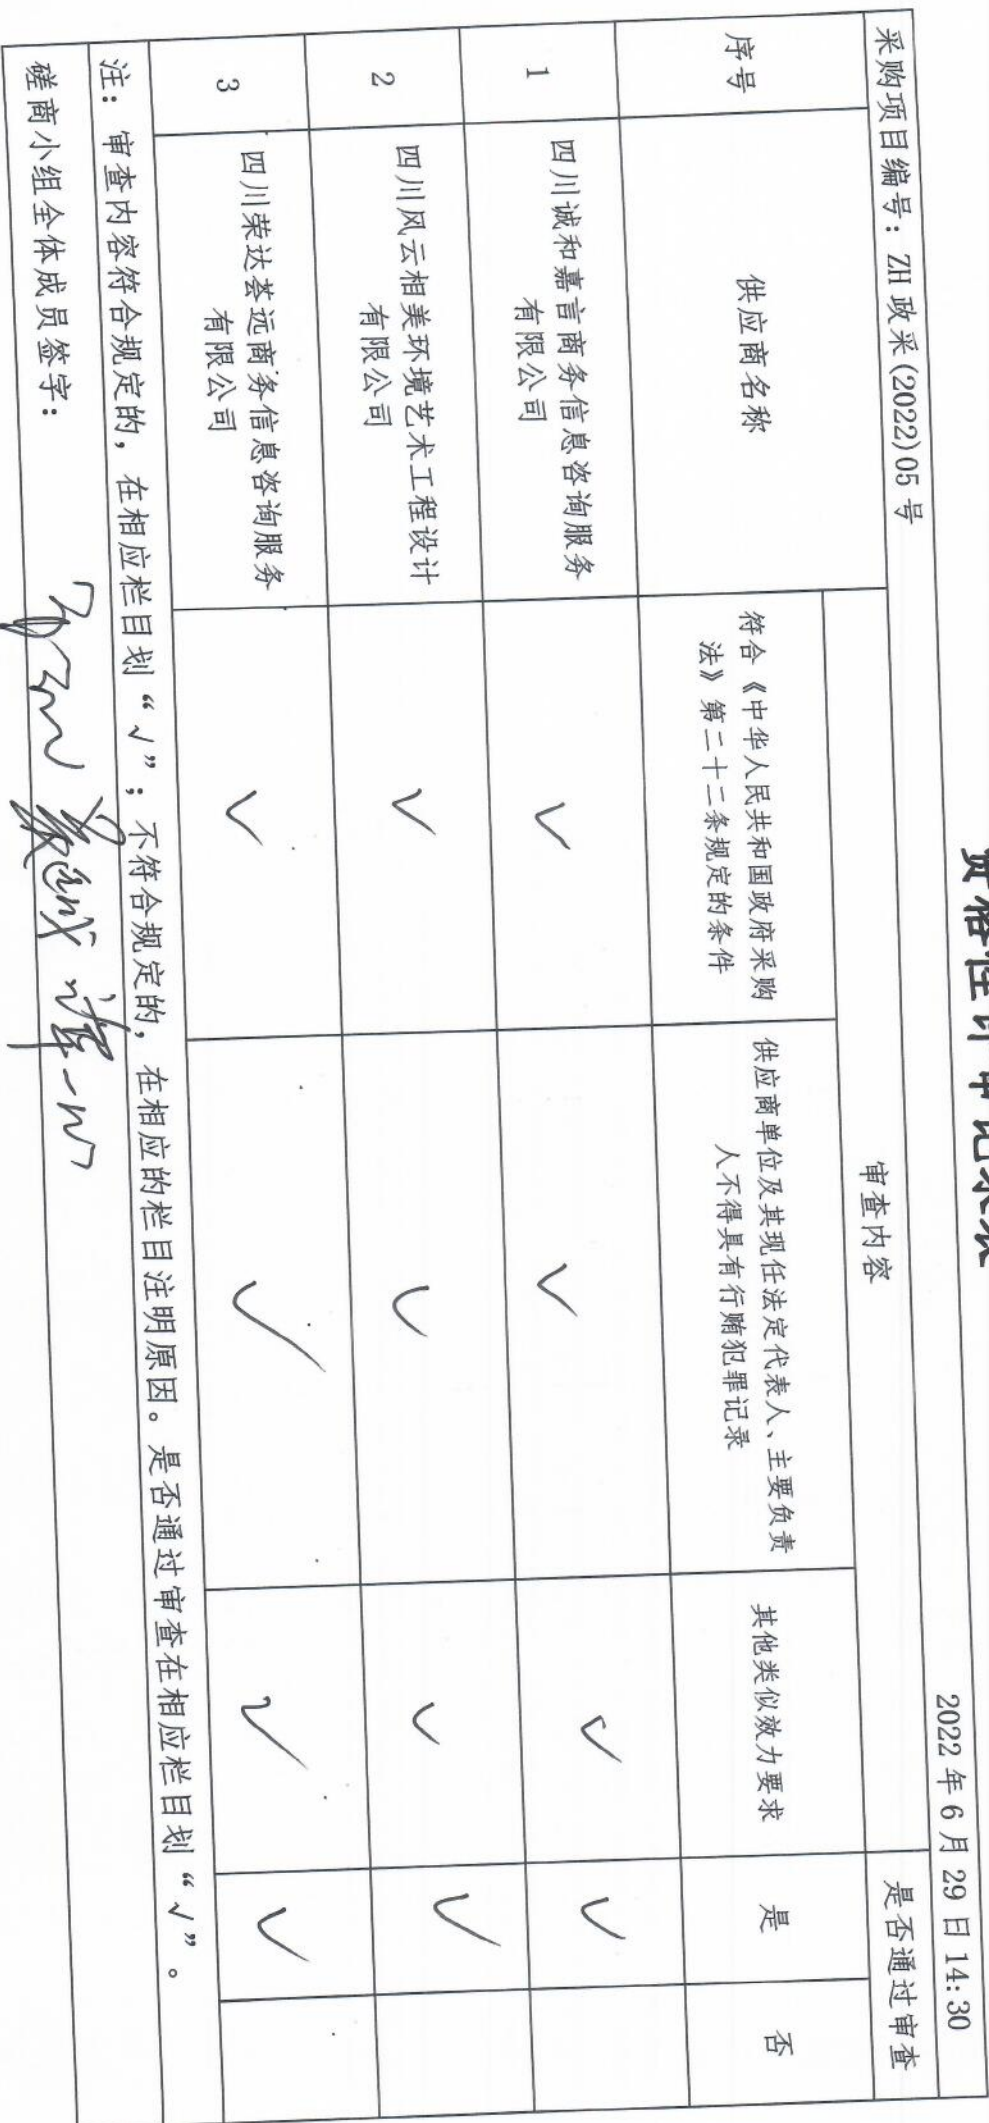 资格性评审记录表
采购项目编号：ZH 政采(2022)05 号
2022 年 6 月 29 日 14:30
序号
供应商名称
审查内容
是否通过审查
符合《中华人民共和国政府采购
法》第二十二条规定的条件
供应商单位及其现任法定代表人、主要负责
人不得具有行贿犯罪记录
其他类似效力要求
是
否
1
四川诚和嘉言商务信息咨询服务
有限公司
✓
✓
✓
✓
2
四川风云相美环境艺术工程设计
有限公司
✓
✓
✓
✓
3
四川荣达荟远商务信息咨询服务
有限公司
✓
✓
✓
✓
注：审查内容符合规定的，在相应栏目划“√”；不符合规定的，在相应的栏目注明原因。是否通过审查在相应栏目划“√”。
磋商小组全体成员签字：